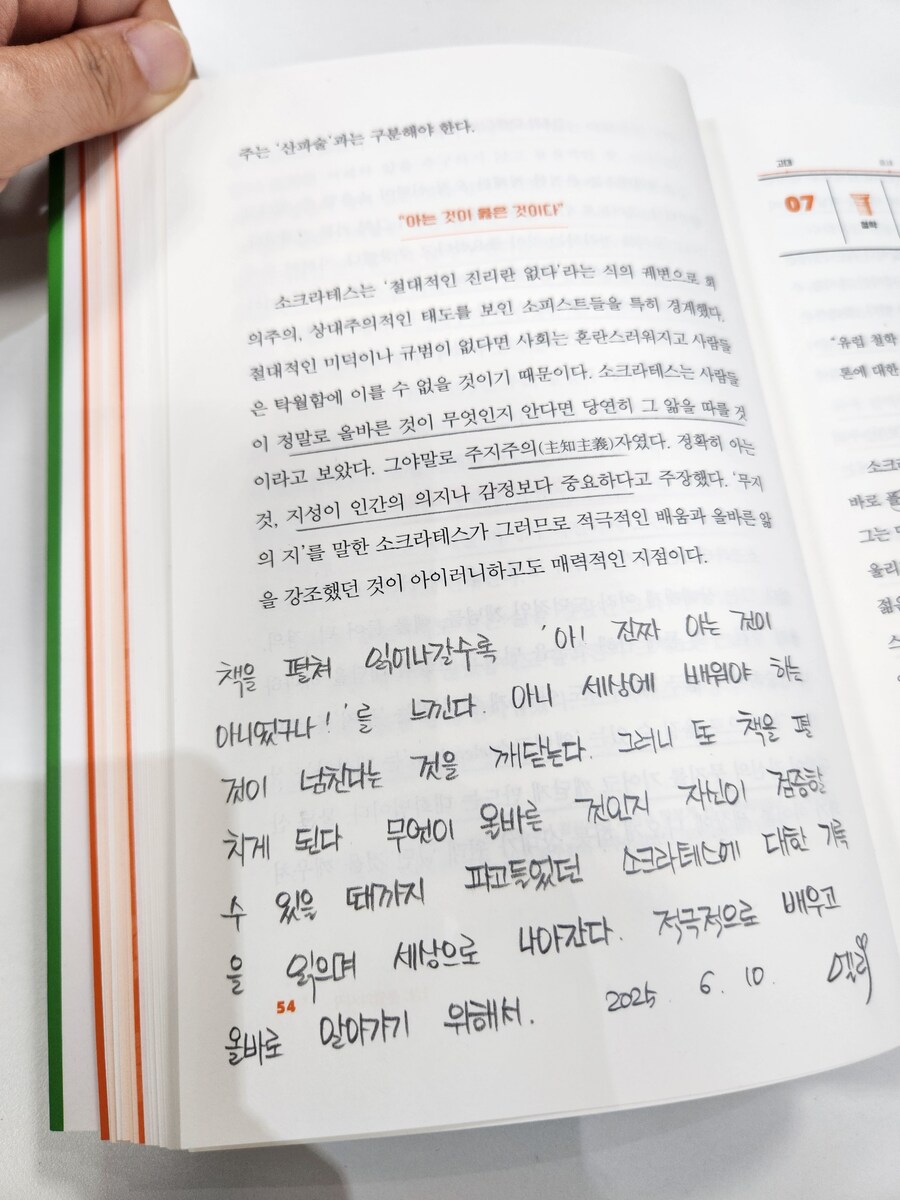 주는 '산파술'과는 구분해야 한다.
"아는 것이 옳은 것이다"
소크라테스는 '절대적인 진리란 없다'라는 식의 궤변으로 회
의주의, 상대주의적인 태도를 보인 소피스트들을 특히 경계했다.
절대적인 미덕이나 규범이 없다면 사회는 혼란스러워지고 사람들
은 탁월함에 이를 수 없을 것이기 때문이다. 소크라테스는 사람들
이 정말로 올바른 것이 무엇인지 안다면 당연히 그 앎을 따를 것
이라고 보았다. 그야말로 주지주의(主知主義)자였다. 정확히 아는
것, 지성이 인간의 의지나 감정보다 중요하다고 주장했다. '무지
의 지'를 말한 소크라테스가 그러므로 적극적인 배움과 올바른 앎
을 강조했던 것이 아이러니하고도 매력적인 지점이다.
책을 펼쳐 읽어나갈수록 '아! 진짜 아는 것이
아니었구나!'를 느낀다. 아니 세상에 배워야 하는
것이 넘친다는 것을 깨닫는다. 그러니 또 책을 펼
치게 된다. 무엇이 올바른 것인지 자신이 검증할
수 있을 때까지 파고들었던 소크라테스에 대한 기록
을 읽으며 세상으로 나아간다. 적극적으로 배우고
올바로 알아가기 위해서. 2025. 6. 10. 엘리
54
고대
07
철학
"유럽 철학
톤에 대한
소크라
바로 플
그는
올리
젊은